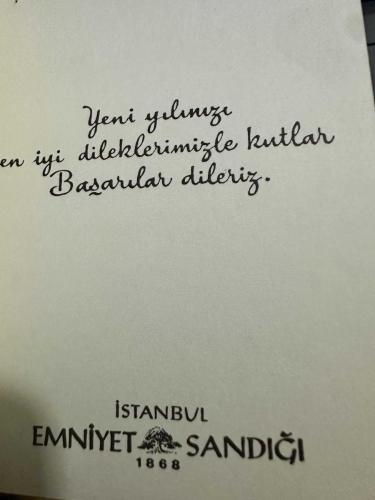 Yeni yılınızı
en iyi dileklerimizle kutlar
Başarılar dileriz.
İSTANBUL
EMNİYET SANDIĞI
1868